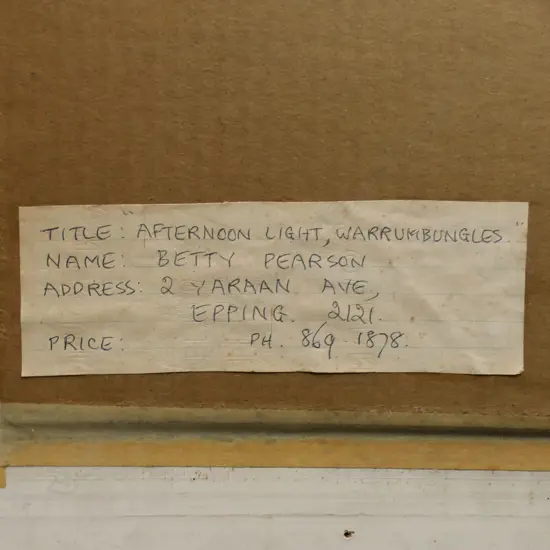 TITLE: "AFTERNOON LIGHT, WARRUMBUNGLES."
NAME: BETTY PEARSON
ADDRESS: 2 YARAAN AVE,
EPPING. 2121.
PRICE: PH. 869 1878.